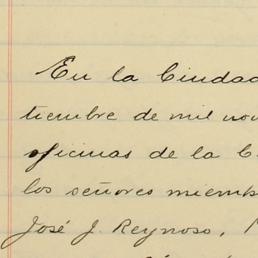 En la Ciudad
tiembre de mil nov
oficinas de la C
los señores miemb
José J. Reynoso,